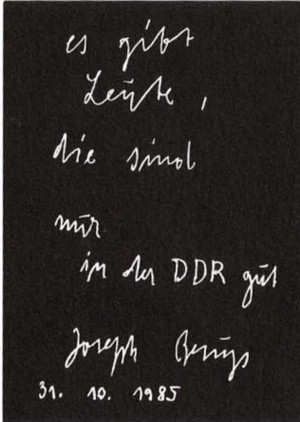 es gibt
Leute,
die sind
nur
in der DDR gut
Joseph Beuys
31. 10. 1985